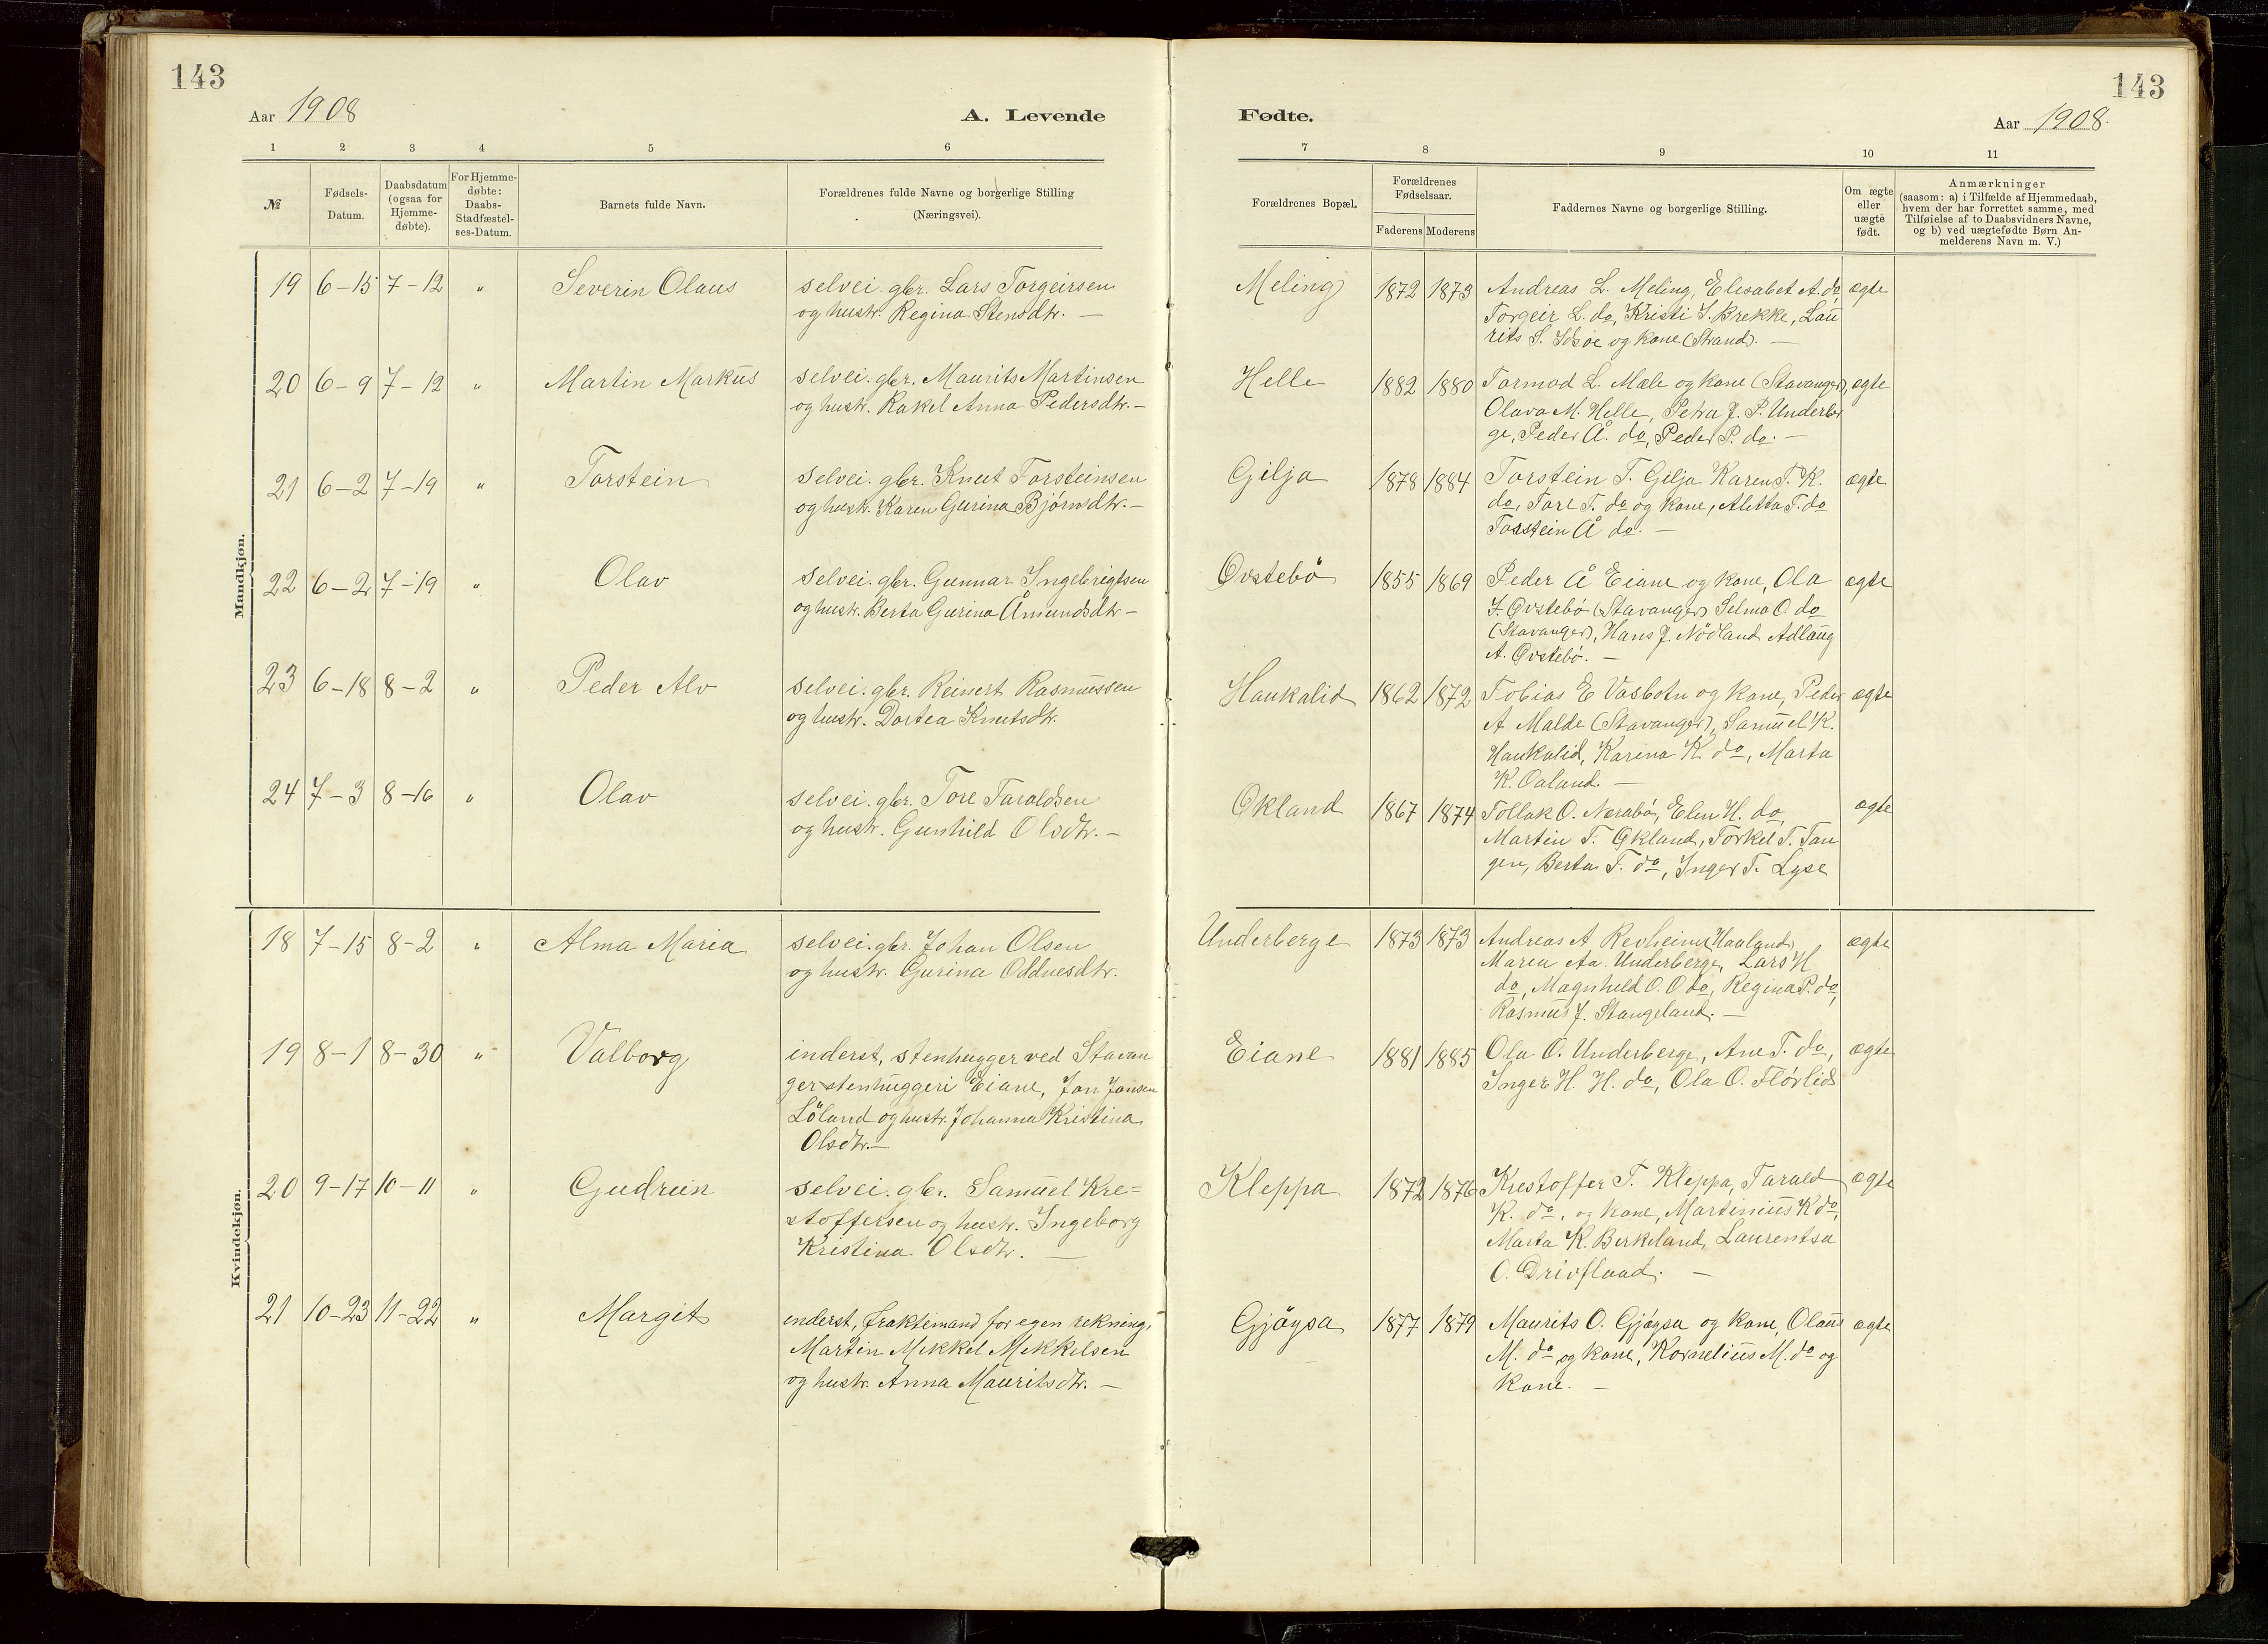 143
Aar 1908
A. Levende
1 2 3 4 5 6
№
Fødsels-
Datum.
Daabsdatum
(ogsaa for
Hjemme-
døbte).
For Hjemme-
døbte:
Daabs-
Stadfæstel-
ses-Datum.
Barnets fulde Navn.
Forældrenes fulde Navne og borgerlige Stilling
(Næringsvei).
Mandkjøn.
19 6-15 7-12 " Severin Olaus selvei. gbr. Lars Torgeirsen
og hustr. Regina Stensdtr. —
20 6-9 7-12 " Martin Markus selvei. gbr. Maurits Martinsen
og hustr. Rakel Anna Pedersdtr. —
21 6-2 7-19 " Torstein selvei. gbr. Knut Torsteinsen
og hustr. Karen Gurina Bjørnsdtr. —
22 6-2 7-19 " Olav selvei. gbr. Gunnar Ingebrigtsen
og hustr. Berta Gurina Åmundsdtr —
23 6-18 8-2 " Peder Alv selvei. gbr. Reinert Rasmussen
og hustr. Dortea Knutsdtr.
24 7-3 8-16 " Olav selvei. gbr. Tore Taraldsen
og hustr. Gunhild Olsdtr. —
Kvindekjøn.
18 7-15 8-2 " Alma Maria selvei. gbr. Johan Olsen
og hustr. Gurina Oddnesdtr.
19 8-1 8-30 " Valborg inderst, stenhugger ved Stavan
ger stenhuggeri Eiane, Jan Jansen
Löland og hustr. Johanna Kristina
Olsdtr. —
20 9-17 10-11 " Gudrun selvei. gbr. Samuel Kre=
stoffersen og hustr. Ingeborg
Kristina Olsdtr. —
21 10-23 11-22 " Margit inderst, fraktemand for egen rekning,
Martin Mikkel Mikkelsen
og hustr. Anna Mauritsdtr. —
143
Fødte.
Aar 1908.
7 8 9 10 11
Forældrenes Bopæl.
Forældrenes
Fødselsaar.
Faderens Moderens
Faddernes Navne og borgerlige Stilling.
Om ægte
eller
uægte
født.
Anmærkninger
(saasom: a) i Tilfælde af Hjemmedaab,
hvem der har forrettet samme, med
Tilføielse af to Daabsvidners Navne,
og b) ved uægtefødte Børn An-
melderens Navn m. V.)
Meling 1872 1873 Andreas L. Meling, Elisabet A. do, ægte
Torgeir L. do, Kristi S. Brekke, Lau
rits S. Idsöe og kone (Strand). —
Helle 1882 1880 Tormod L. Mæle og kone (Stavanger), ægte
Olava M. Helle, Petra J. P. Underber
ge, Peder Å. do, Peder P. do. —
Gilja 1878 1884 Torstein T. Gilja Karen T. K. ægte
do, Tore T. do og kone, Aletta T. do
Torstein Å do. —
Ovstebö 1855 1869 Peder Å Eiane og kone, Ola ægte
I. Ovstebö (Stavanger) Selma O. do
(Stavanger), Hans J. Nödland Adlaug
A. Ovstebö. —
Haukalid 1862 1872 Tobias E Vasbotn og kone, Peder ægte
A Malde (Stavanger), Samuel K.
Haukalid, Karina K. do, Marta
K. Oaland. —
Okland 1867 1874 Tollak O. Nerabö, Elen H. do, ægte
Martin T. Okland, Torkel T. Tan
gen, Berta T. do, Inger T. Lyse
Underberge 1873 1873 Andreas A Revheim (Haaland) ægte
Maren Aa. Underberge, Lars H
do, Magnhild O. O do, Regina P. do,
Rasmus J. Stangeland. —
Eiane 1881 1885 Ola O. Underberge, Ane T. do, ægte
Inger H. H. do, Ola O. Flörlid
Kleppa 1872 1876 Krestoffer T. Kleppa, Tarald ægte
K. do, og kone, Martinius K do,
Marta K. Berkeland, Laurentsa
O. Drivfland. —
Gjöysa 1877 1879 Maurits O. Gjöysa og kone, Olaus ægte
M. do og kone, Kornelius M. do og
kone. —